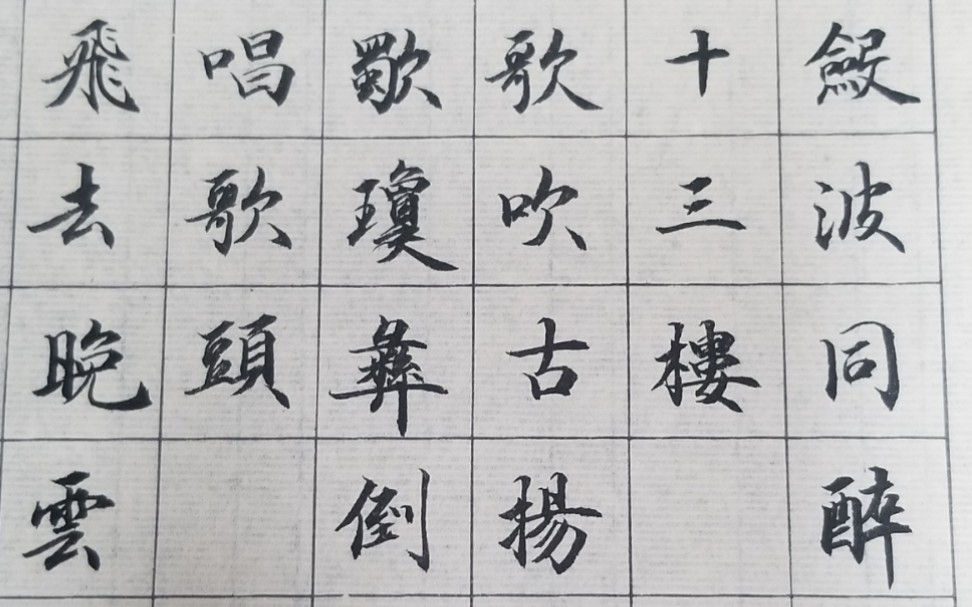 斂波同醉
十三樓
歌吹古揚
歜瓊彝倒
唱歌頭
飛去晚雲